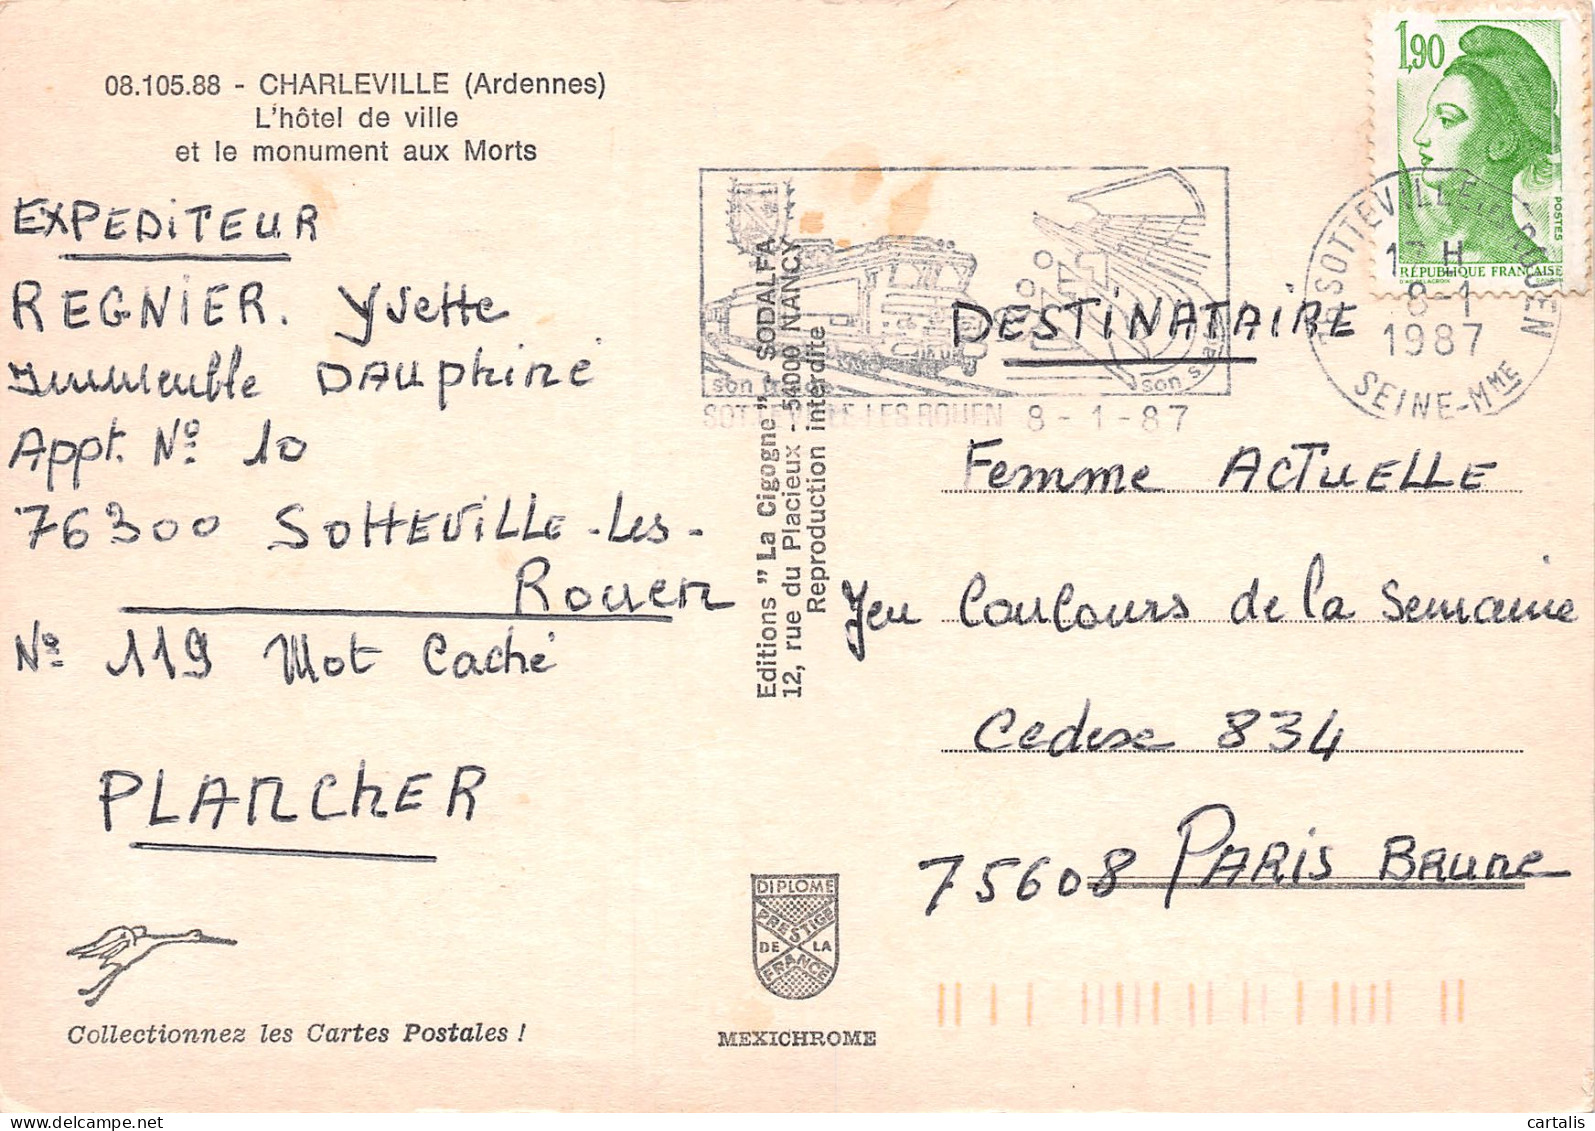 08.105.88 - CHARLEVILLE (Ardennes)
L'hôtel de ville
et le monument aux Morts
EXPEDITEUR
REGNIER. Yvette
Immeuble DAUphiné
Appt. Nº 10
76300 SOTTEViLLE-les-
Rouen
Nº 119 Mot Caché
PLANChER
Collectionnez les Cartes Postales !
Editions " La Cigogne " SODALFA
12, rue du Placieux - 54000 NANCY
Reproduction interdite
DIPLOME
PRESTIGE
DE LA
FRANCE
MEXICHROME
SOTTEVILLE-LES-ROUEN 8-1-87
1,90
POSTES
RÉPUBLIQUE FRANÇAISE
SOTTEVILLE-L-ROUEN
17 H
8-1
1987
SEINE-MME
DESTINATAIRE
Femme ACTUELLE
Jeu Concours de la Semaine
Cedex 834
75608 PARIS BRUNE
cartalis
www.delcampe.net